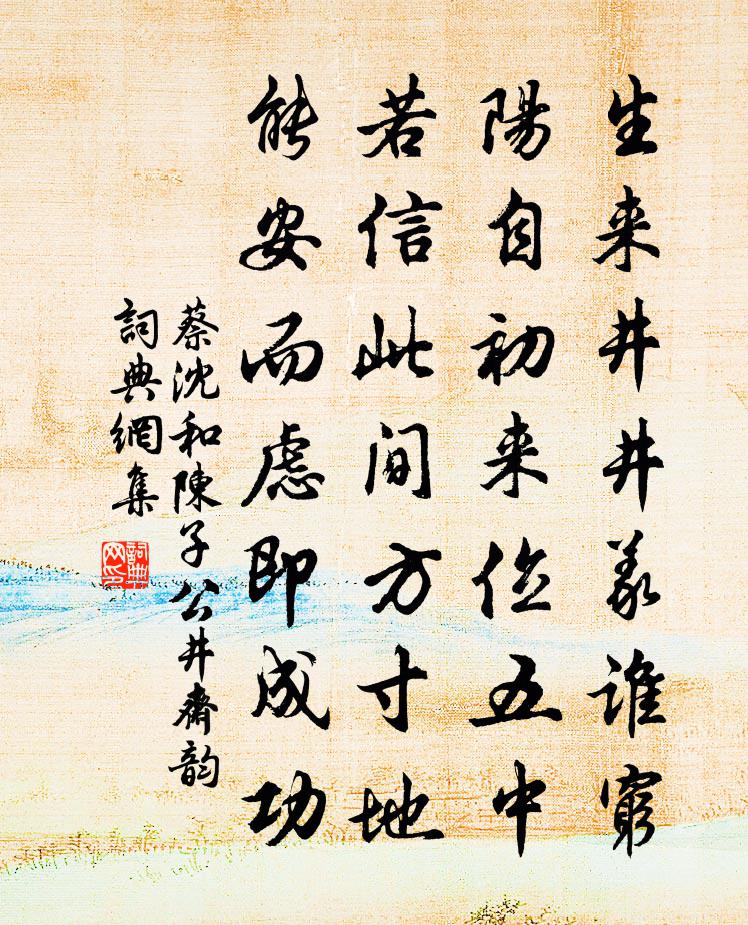 生来井井義誰窮
陽自初来位五中
若信此間方寸地
能安而慮即成功
蔡沈和陳子公井齋韵
詞典網集
詞典网印